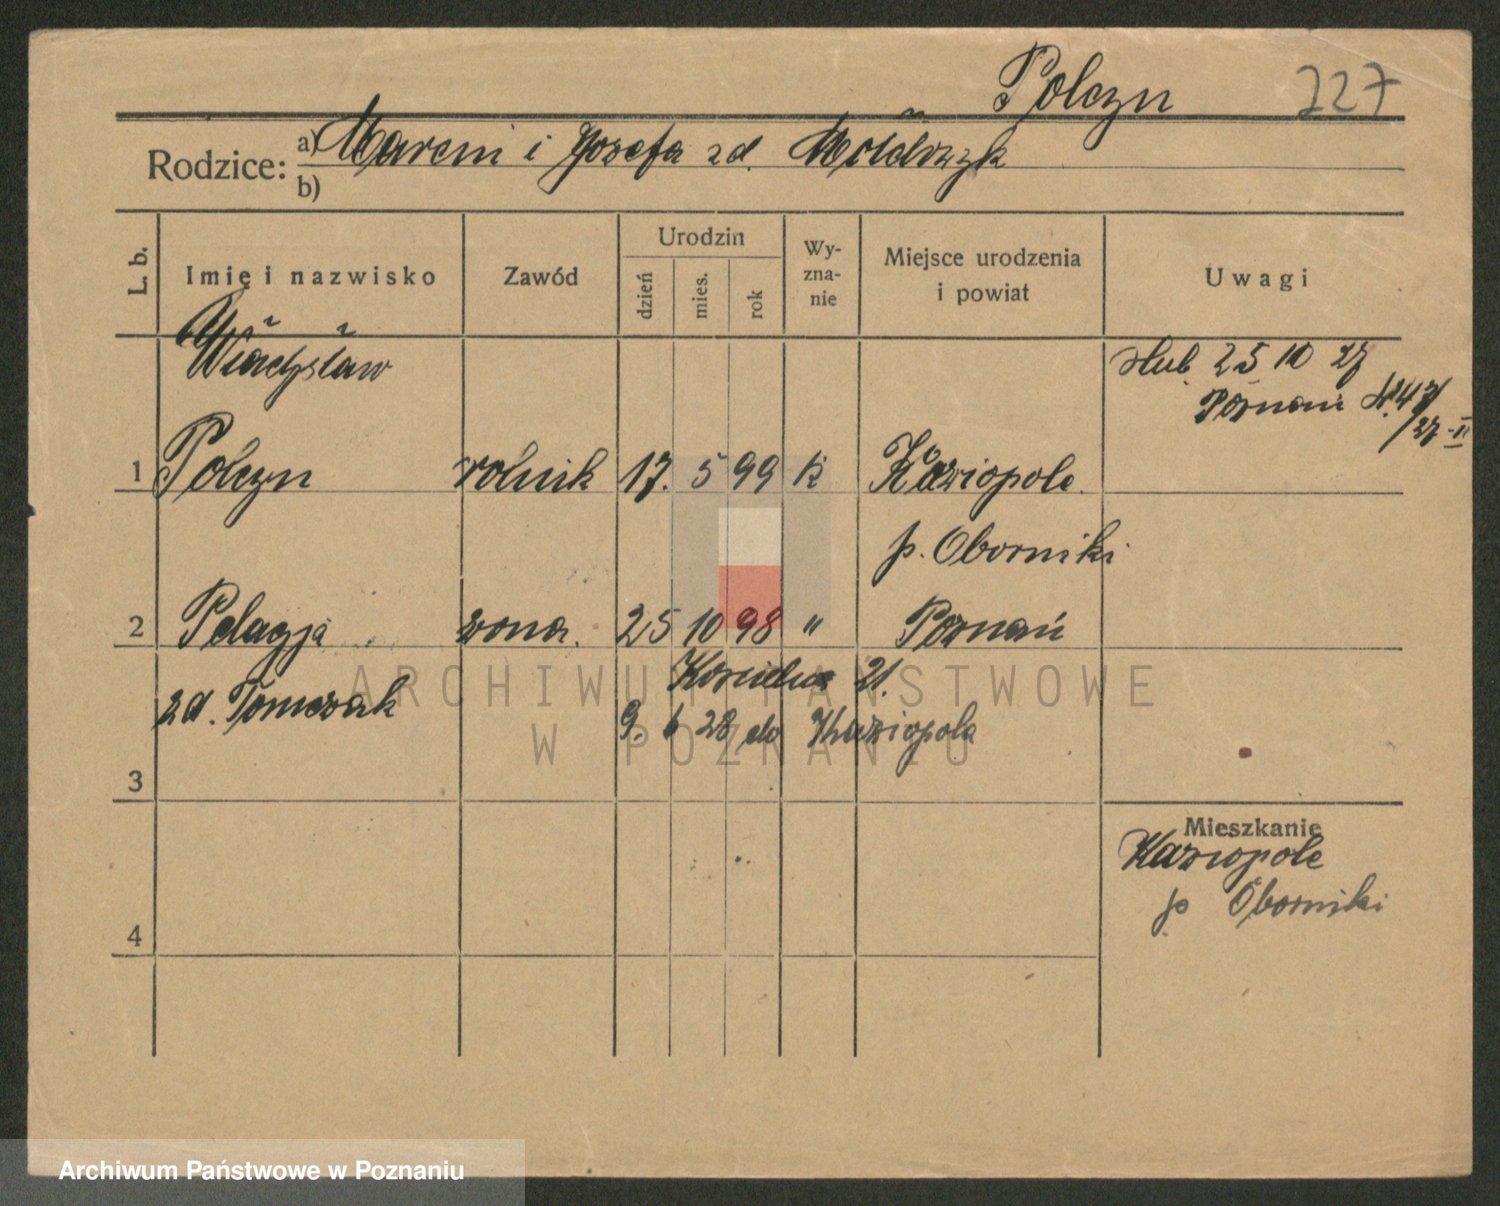 Polczyn 227
Rodzice: a) Marcin i Jozefa zd. Mołdrzyk
b)
L. b. Imię i nazwisko Zawód Urodzin dzień mies. rok Wy-zna-nie Miejsce urodzenia i powiat Uwagi
Władysław ślub 25 10 27
Poznań
1 Polczyn rolnik 17. 5 99 k Kaziopole
p. Oborniki
2 Pelagja żona. 25 10 98 " Poznań
21.
zd. Tomczak 9. 6 28 do Kaziopola
3
Mieszkanie
Kaziopole
p Oborniki
4
ARCHIWUM PAŃSTWOWE
W POZNANIU
Archiwum Państwowe w Poznaniu